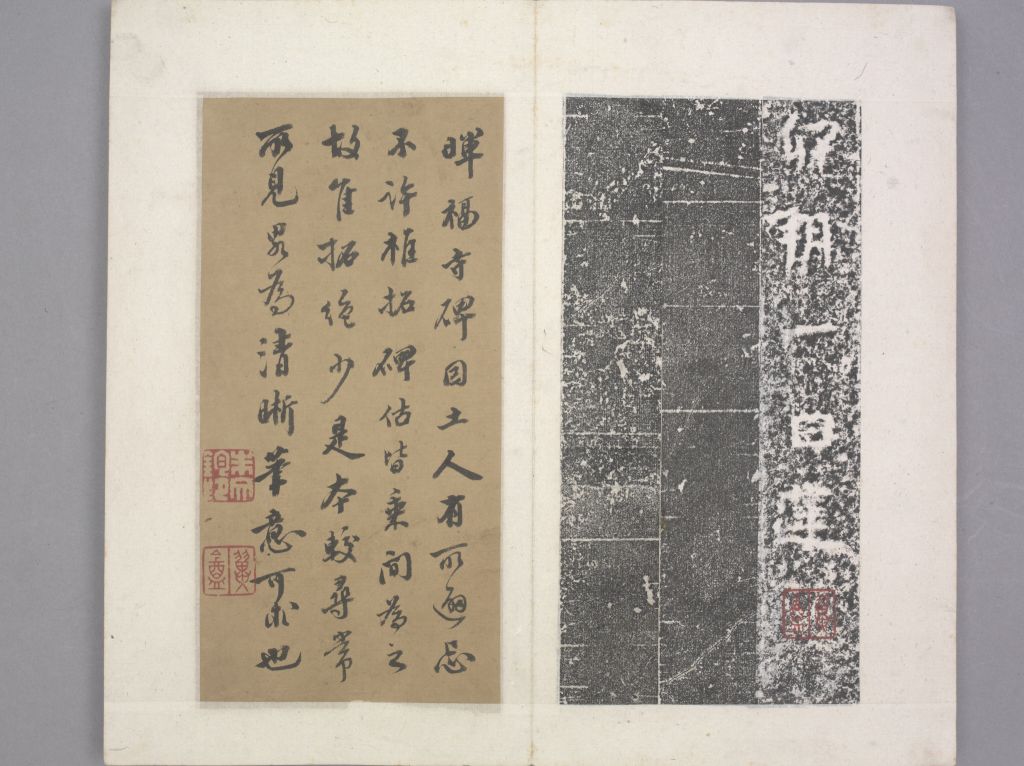 卯朔一日建
暉福寺碑因土人有所避忌
不許椎拓碑估皆乘間為之
故隹拓絕少是本較尋常
所見畧為清晰筆意可求也